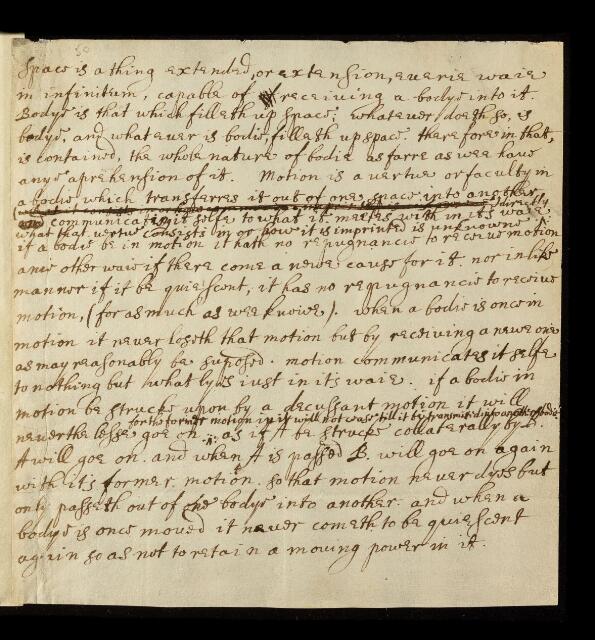 50
Space is a thing extended, or extension, everie waie
in infinitum, capable of receiving a bodye into it.
Bodye is that which filleth up space; whatever, doeth so, is
bodye, and whatever is bodie, filleth up space. therefore in that,
is contained, the whole nature of bodie as farre as wee have
anye aprehension of it. Motion is a vertue or faculty in
a bodie which transferres it out of one space into another
directly
communicating it selfe to what it meetes with in its waie
what that vertue consists in or how it is imprinted is unknowne
if a bodie be in motion it hath no repugnancie to receive motion
anie other waie if there come a newe cause for it. nor in like
manner if it be quiescent, it has no repugnancie to receive
motion, (for as much as wee knowe). when a bodie is once in
motion it never loseth that motion but by receiving a newe one
as may reasonably be suposed. motion communicates it selfe
to nothing but what lyes iust in its waie. if a bodie in
motion be strucke upon by a decussant motion it will
for the former motion in it will not cease till it by transmited into another bodie
nevertheless goe on. as if A be strucke collaterally by B.
A will goe on. and when A is passed B. will goe on again
with its former motion. so that motion never dyes but
only passeth out of one bodye into another. and when a
bodye is once moved it never cometh to be quiescent
again so as not to retain a moving power in it.